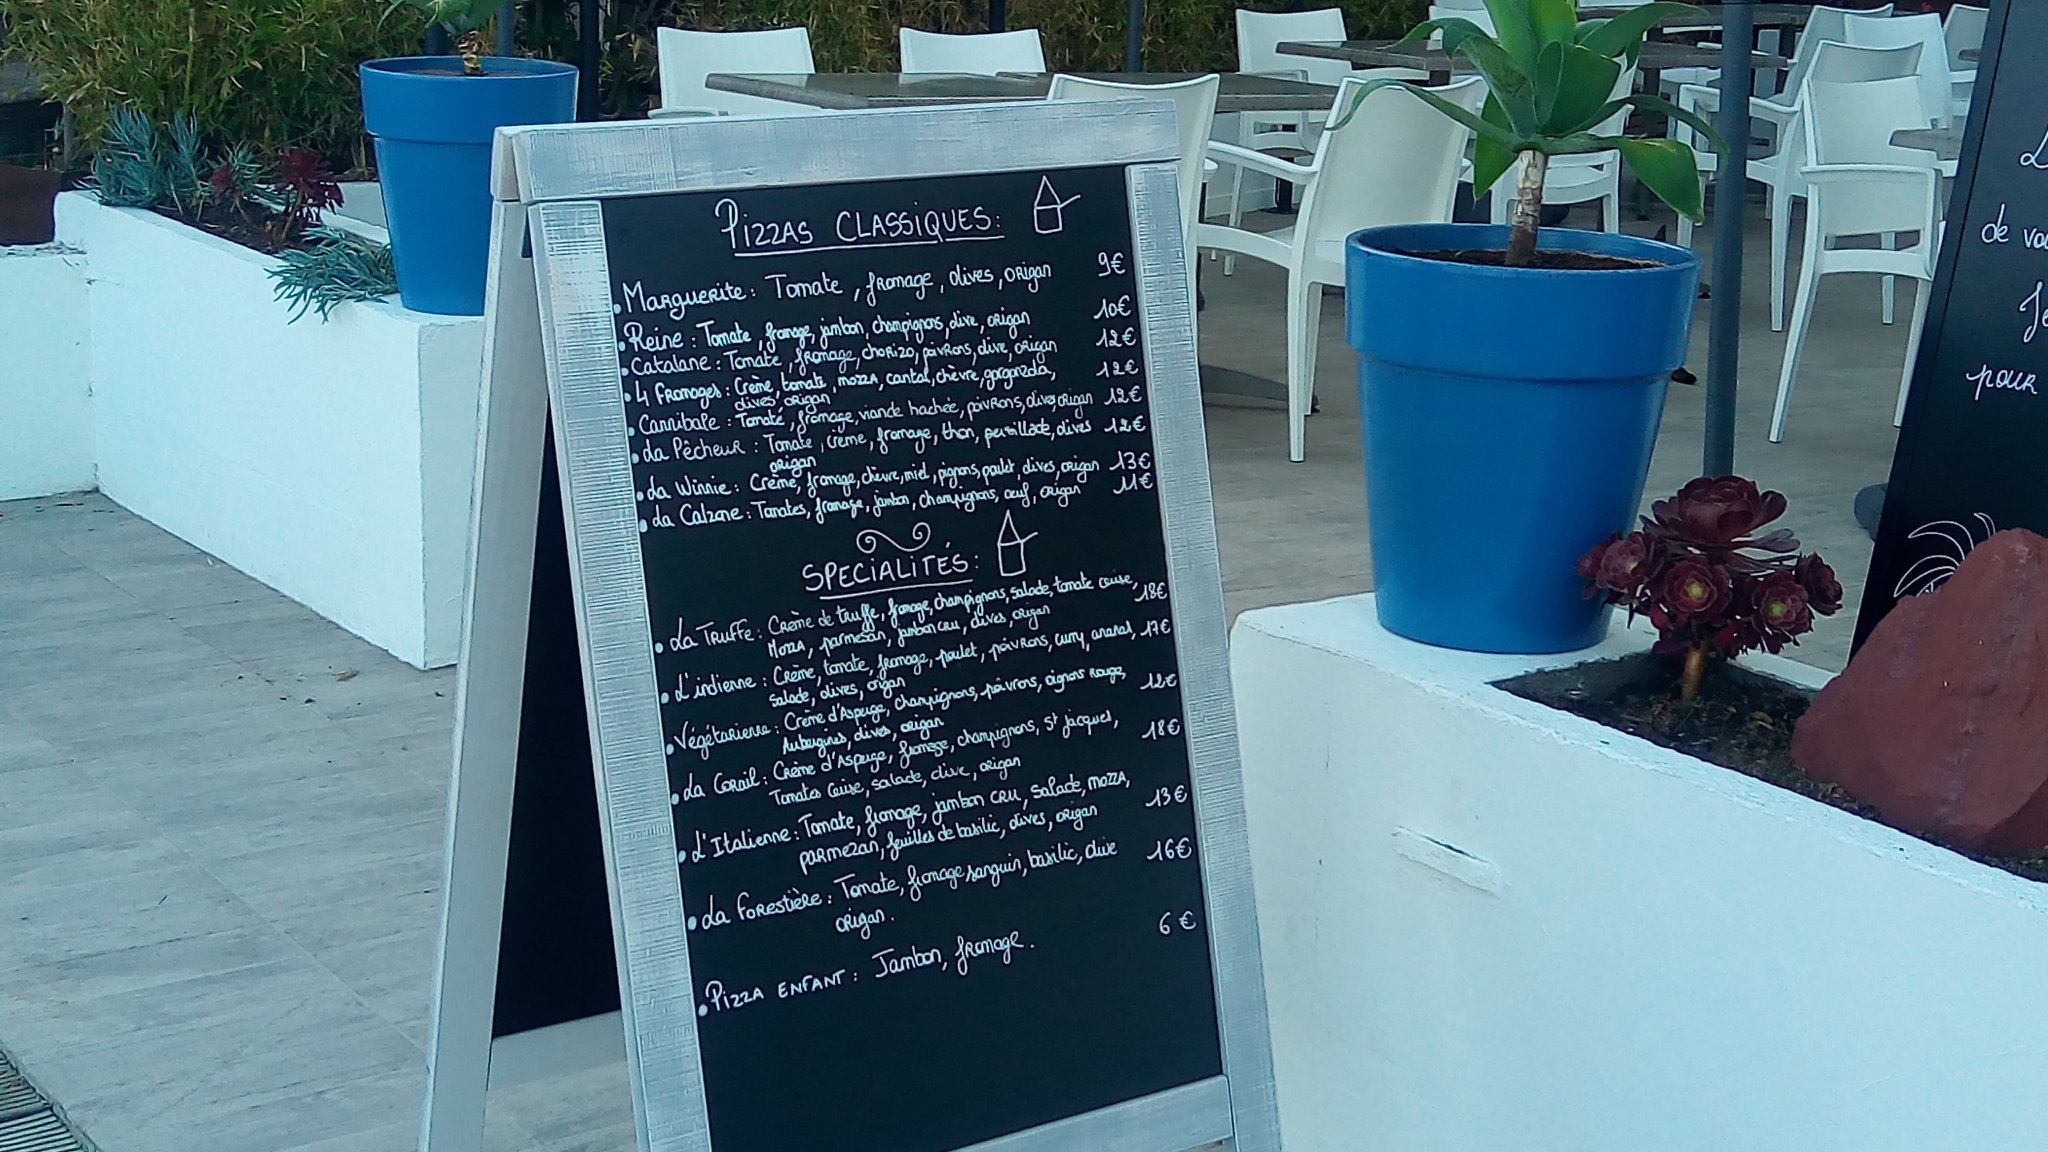 Pizzas Classiques:
• Marguerite: Tomate, fromage, olives, origan 9€
• Reine: Tomate, fromage, jambon, champignons, olive, origan 10€
• Catalane: Tomate, fromage, chorizo, poivrons, olive, origan 12€
• 4 Fromages: Crème, tomate, mozza, cantal, chèvre, gorgonzola, 12€
olives, origan
• Cannibale: Tomate, fromage, viande hachée, poivrons, olives, origan 12€
• La Pêcheur: Tomate, crème, fromage, thon, persillade, olives 12€
origan
• La Winnie: Crème, fromage, chèvre, miel, pignons, poulet, olives, origan 13€
• La Calzone: Tomates, fromage, jambon, champignons, oeuf, origan 11€
Spécialités:
• La Truffe: Crème de truffe, fromage, champignons, salade, tomate cerise, 18€
Mozza, parmesan, jambon cru, olives, origan
• L'indienne: Crème, tomate, fromage, poulet, poivrons, curry, ananas, 17€
salade, olives, origan
• Végétarienne: Crème d'Asperge, champignons, poivrons, oignons rouge, 12€
Aubergines, olives, origan
• La Corail: Crème d'Asperge, fromage, champignons, St jacques, 18€
Tomates cerise, salade, olive, origan
• L'Italienne: Tomate, fromage, jambon cru, salade, mozza, 13€
parmezan, feuilles de basilic, olives, origan
• La Forestière: Tomate, fromage sanguin, basilic, olive 16€
origan.
• Pizza enfant: Jambon, fromage. 6€
de
pour